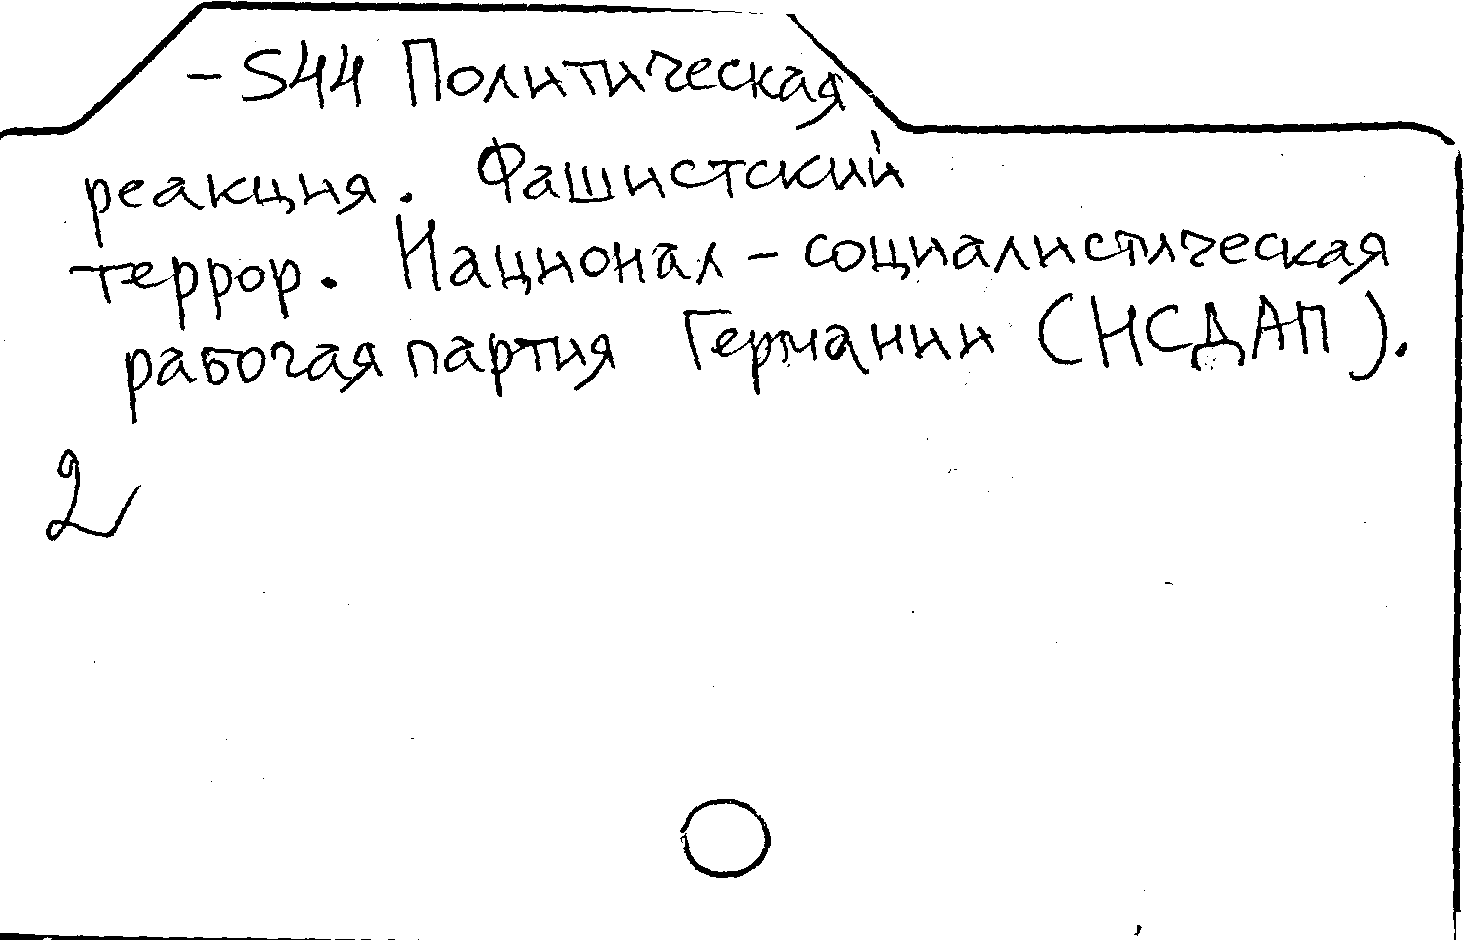 -S44 Политическая
реакция. Фашистский
террор. Национал-социалистическая
рабочая партия Германии (НСДАП).
2